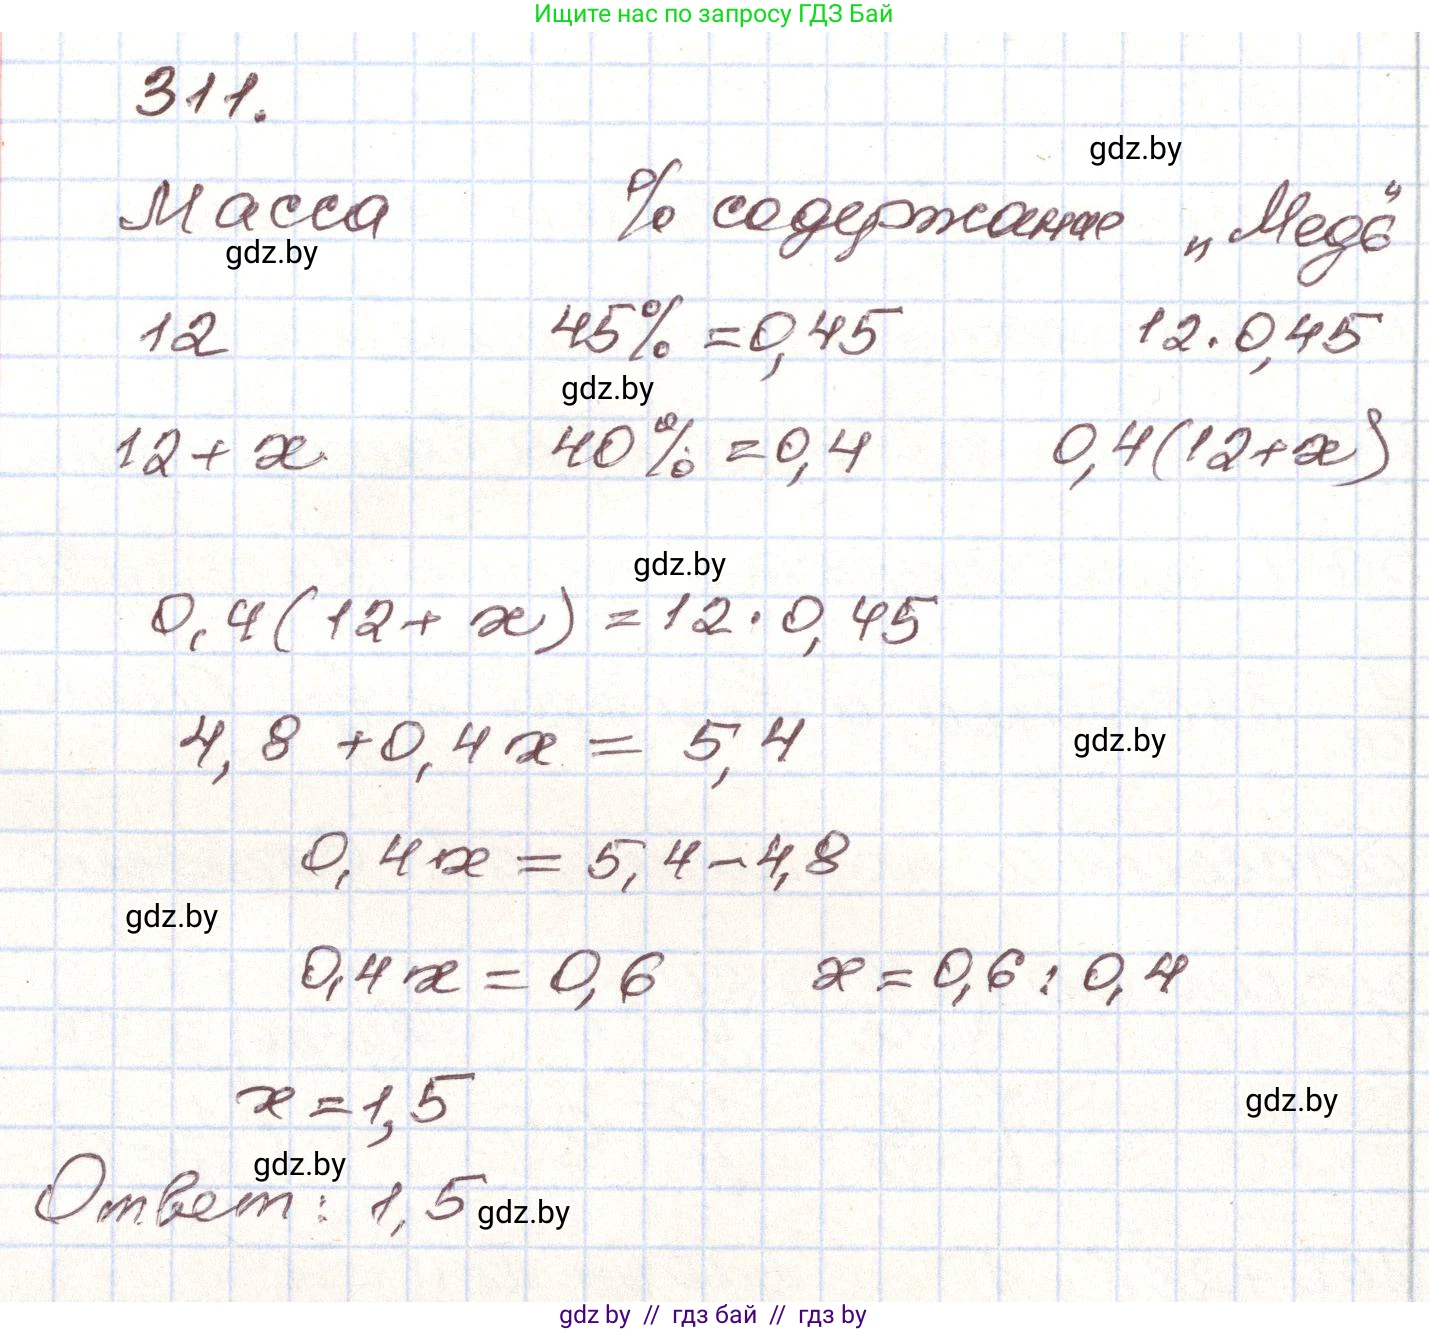 Ищите нас по запросу ГДЗ Бай
311.
gdz.by
Масса % содержание „Медь“
gdz.by
12 45% = 0,45 12 · 0,45
gdz.by
12 + x 40% = 0,4 0,4(12+x)
gdz.by
0,4(12 + x) = 12 · 0,45
4,8 + 0,4x = 5,4
gdz.by
0,4x = 5,4 − 4,8
gdz.by
0,4x = 0,6 x = 0,6 : 0,4
x = 1,5
gdz.by
gdz.by
Ответ: 1,5
gdz.by
gdz by // гдз бай // гдз by